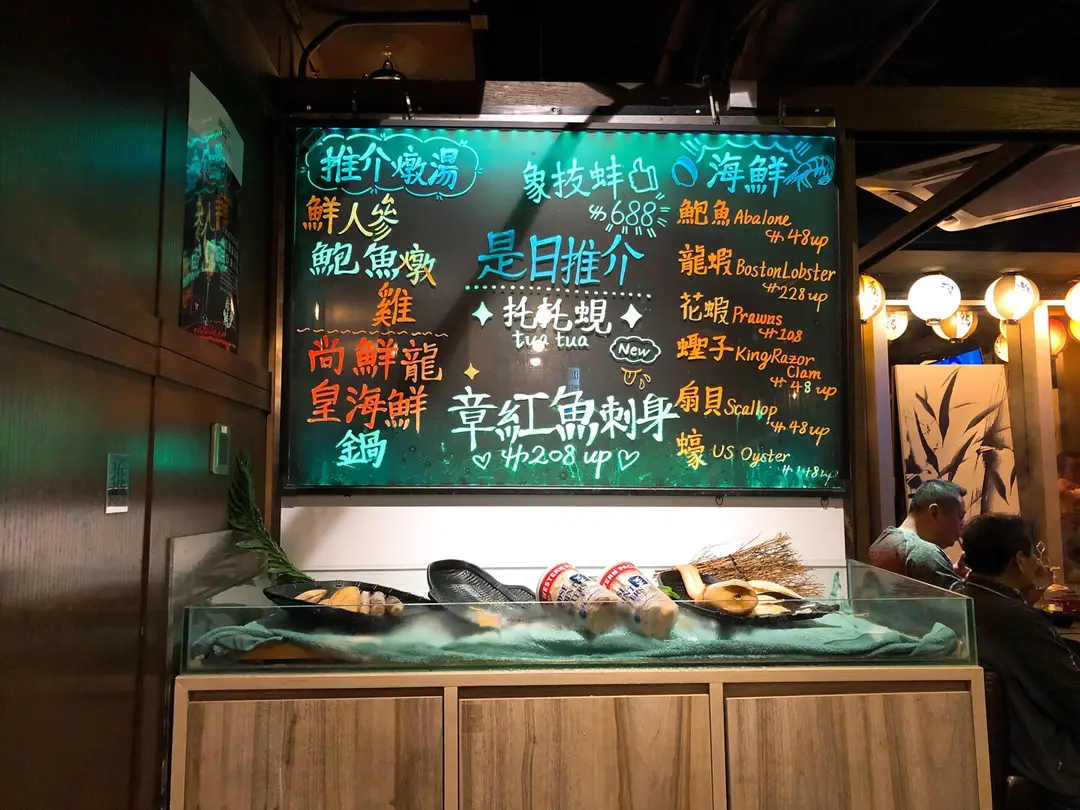 推介燉湯
鮮人參
鮑魚燉
雞
尚鮮龍
皇海鮮
鍋
象拔蚌
$688
是日推介
托托蜆
tua tua
New
章紅魚刺身
$208 up
海鮮
鮑魚 Abalone
$48up
龍蝦 Boston Lobster
$228up
花蝦 Prawns
$108
蟶子 King Razor
Clam
$48 up
扇貝 Scallop
$48up
蠔 US Oyster
$48up